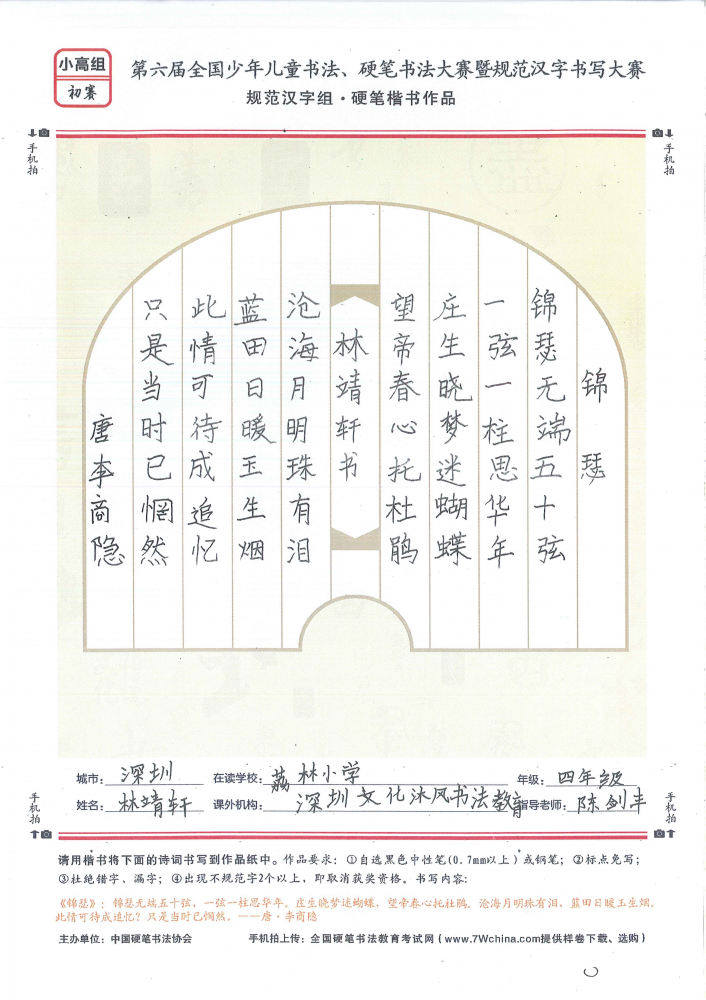 小高组
初赛
第六届全国少年儿童书法、硬笔书法大赛暨规范汉字书写大赛
规范汉字组·硬笔楷书作品
手机拍
手机拍
锦瑟
锦瑟无端五十弦
一弦一柱思华年
庄生晓梦迷蝴蝶
望帝春心托杜鹃
林靖轩书
沧海月明珠有泪
蓝田日暖玉生烟
此情可待成追忆
只是当时已惘然
唐李商隐
城市：深圳 在读学校：荔林小学 年级：四年级
姓名：林靖轩 课外机构：深圳文化沐风书法教育 指导老师：陈剑丰
手机拍
手机拍
请用楷书将下面的诗词书写到作品纸中。作品要求：①自选黑色中性笔(0.7mm以上）或钢笔；②标点免写；
③杜绝错字、漏字；④出现不规范字2个以上，即取消获奖资格。书写内容：
《锦瑟》：锦瑟无端五十弦，一弦一柱思华年。庄生晓梦迷蝴蝶，望帝春心托杜鹃。沧海月明珠有泪，蓝田日暖玉生烟。
此情可待成追忆？只是当时已惘然。——唐·李商隐
主办单位：中国硬笔书法协会 手机拍上传：全国硬笔书法教育考试网（www.7Wchina.com提供样卷下载、选购）